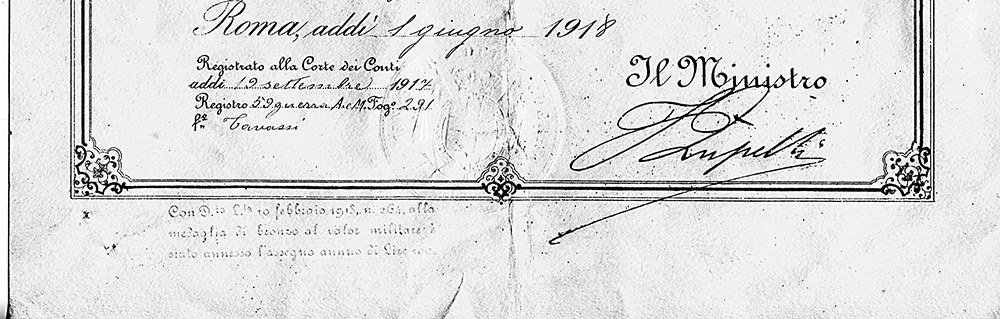 Roma, addì 1 giugno 1918
Registrato alla Corte dei Conti
addì 19 settembre 1917
Registro 58 guerra A. e M. Fog.° 291
f.° Tavassi
Il Ministro
Zupelli
Con D.to L.le 10 febbraio 1918, n. 264, alla
medaglia di bronzo al valor militare è
stato annesso l'assegno annuo di Lire 100.